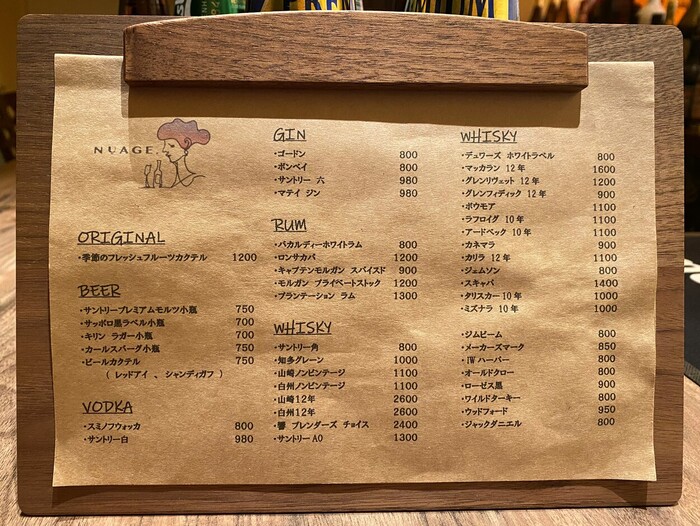 NUAGE.
ORIGINAL
・季節のフレッシュフルーツカクテル 1200
BEER
・サントリープレミアムモルツ小瓶 750
・サッポロ黒ラベル小瓶 700
・キリン ラガー小瓶 700
・カールスバーグ小瓶 750
・ビールカクテル 750
( レッドアイ 、 シャンディガフ )
VODKA
・スミノフウォッカ 800
・サントリー白 980
GIN
・ゴードン 800
・ボンベイ 800
・サントリー 六 980
・マテイ ジン 980
RUM
・バカルディーホワイトラム 800
・ロンサカパ 1200
・キャプテンモルガン スパイスド 900
・モルガン プライベートストック 1200
・プランテーション ラム 1300
WHISKY
・サントリー角 800
・知多グレーン 1000
・山崎ノンビンテージ 1100
・白州ノンビンテージ 1100
・山崎12年 2600
・白州12年 2600
・響 ブレンダーズ チョイス 2400
・サントリーAO 1300
WHISKY
・デュワーズ ホワイトラベル 800
・マッカラン 12年 1600
・グレンリヴェット 12年 1200
・グレンフィディック 12年 900
・ボウモア 1100
・ラフロイグ 10年 1100
・アードベック 10年 1100
・カネマラ 900
・カリラ 12年 1100
・ジェムソン 800
・スキャパ 1400
・タリスカー 10年 1000
・ミズナラ 10年 1000
・ジムビーム 800
・メーカーズマーク 850
・IWハーパー 800
・オールドクロー 800
・ローゼス黒 900
・ワイルドターキー 800
・ウッドフォード 950
・ジャックダニエル 800